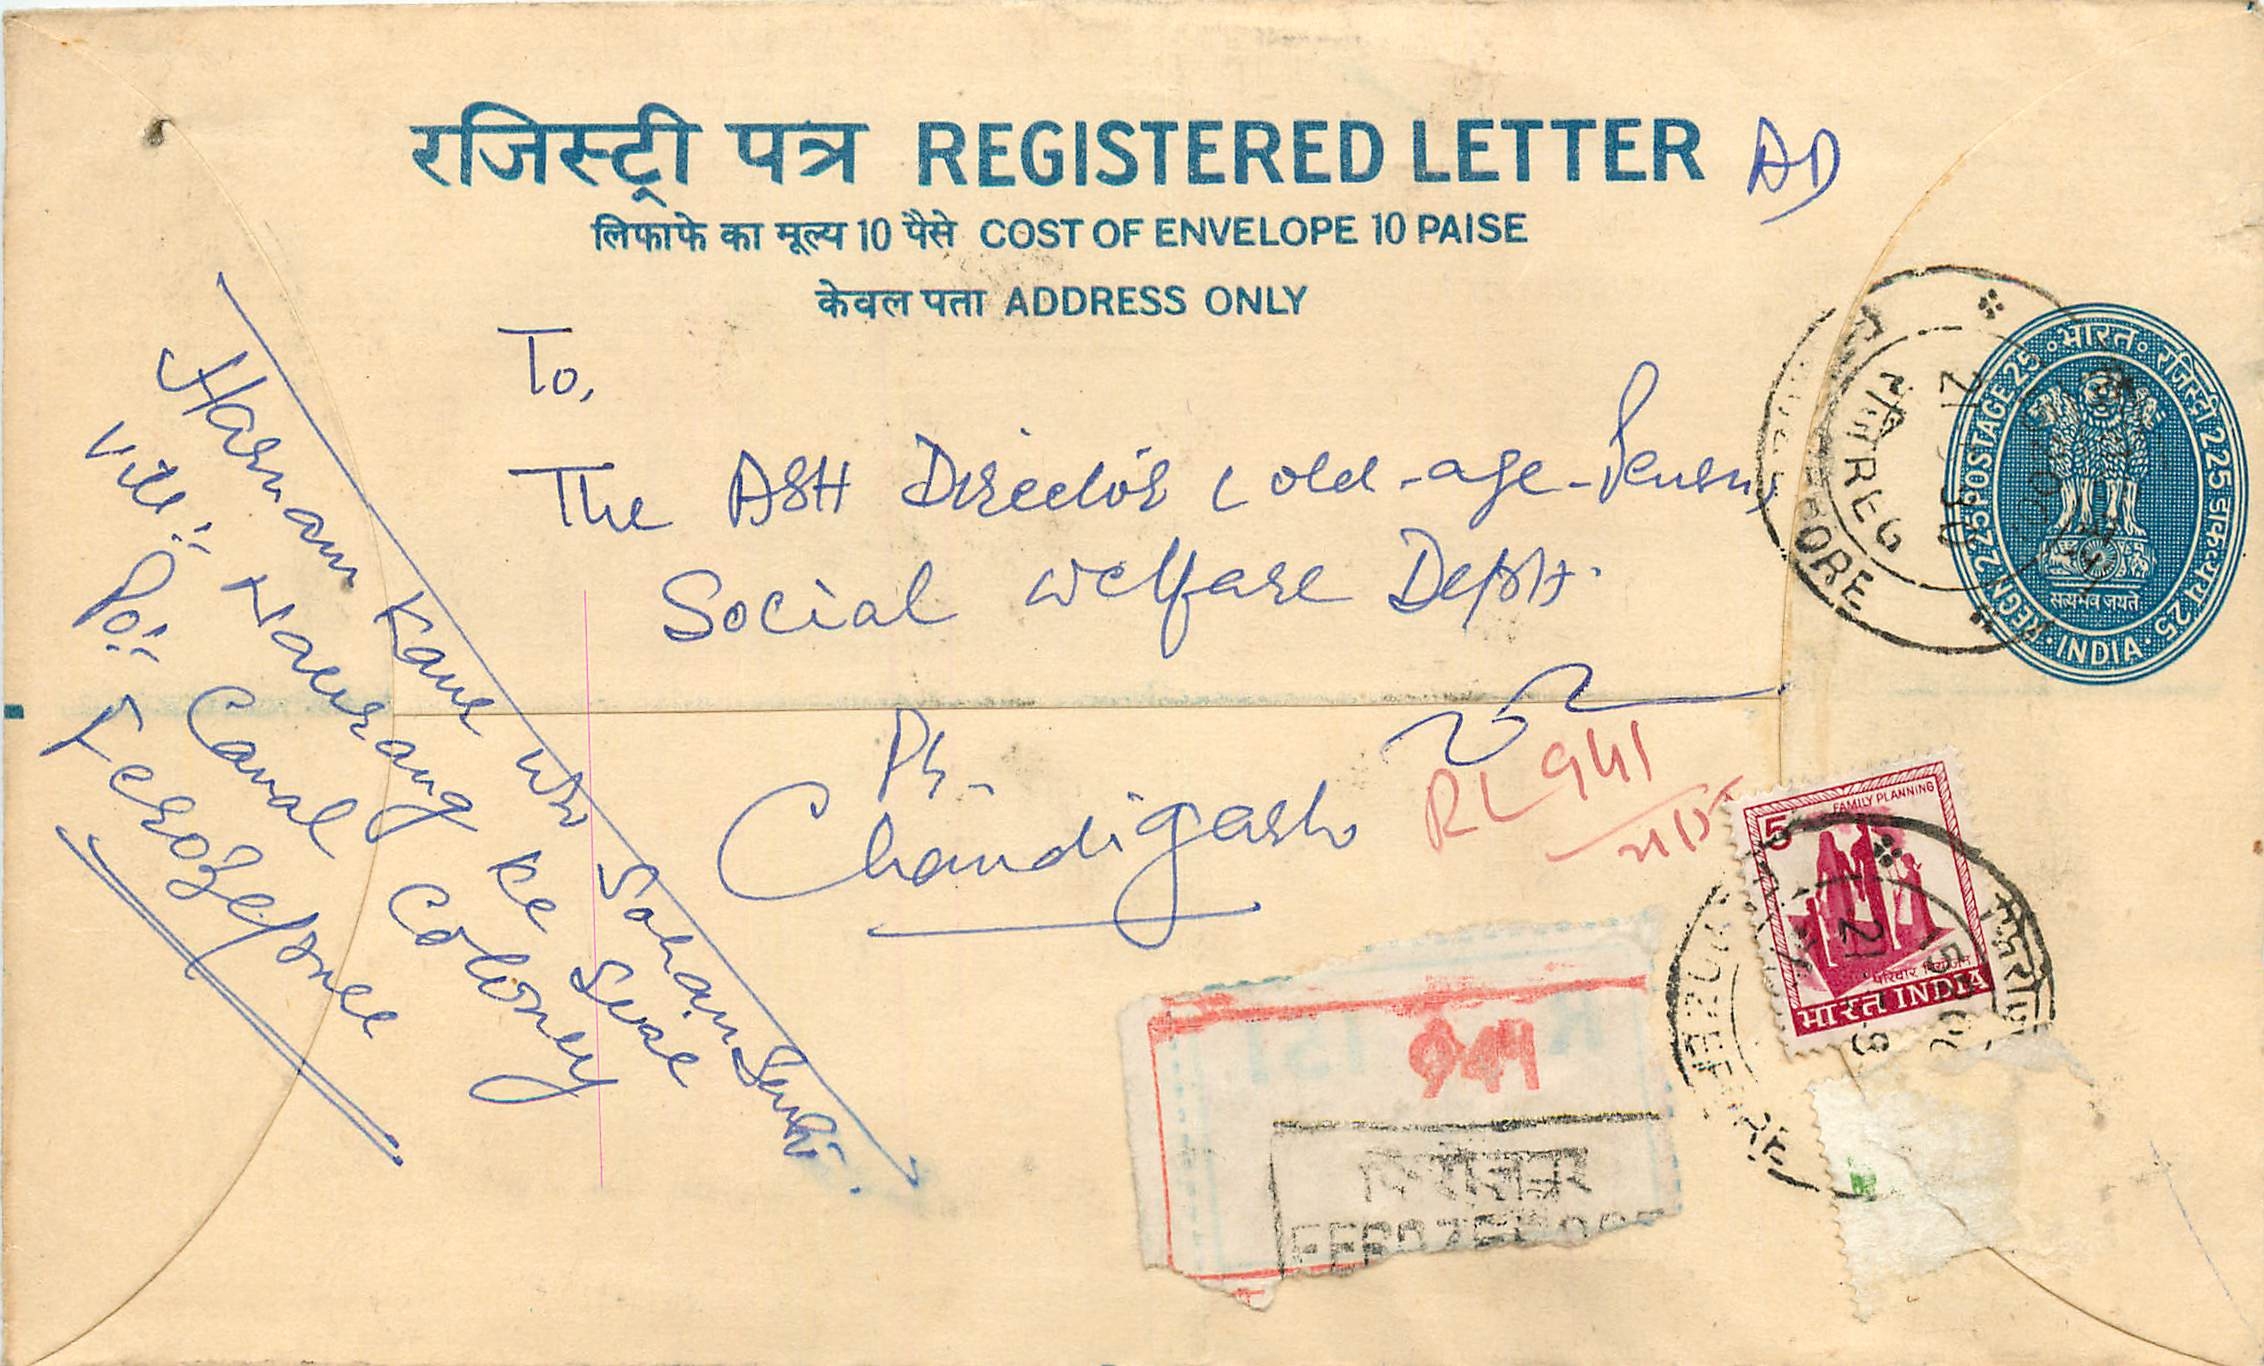 रजिस्ट्री पत्र REGISTERED LETTER AD
लिफाफे का मूल्य 10 पैसे COST OF ENVELOPE 10 PAISE
केवल पता ADDRESS ONLY
To,
The Director (old-age-
Social Welfare Deptt.
Pb.
Chandigarh
Harnam Kaur w/o Sohan
Vill:: Naurang ke
Po:: Canal Colony
Ferozepore
RL 941
भारत रजिस्ट्री 2.25 डाकव्यय 25
REGN 2.25 POSTAGE 25
सत्यमेव जयते
INDIA
REG
ORE
FAMILY PLANNING
5
परिवार नियोजन
भारत INDIA
941